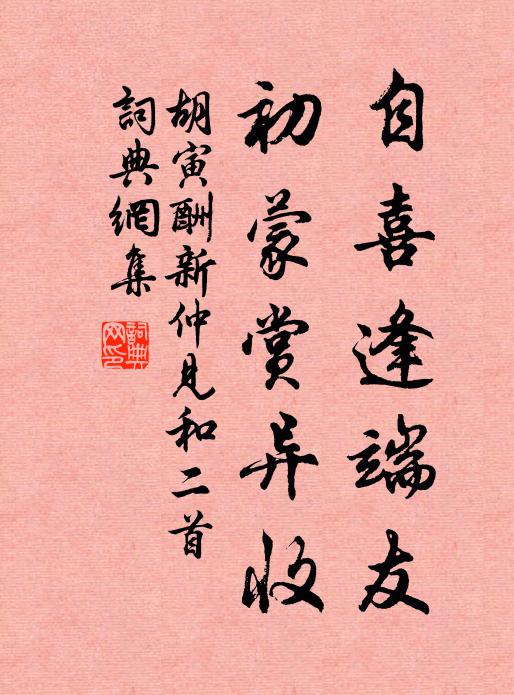 自喜逢端友
初蒙賞异收
胡寅酬新仲見和二首
詞典網集
詞典网印